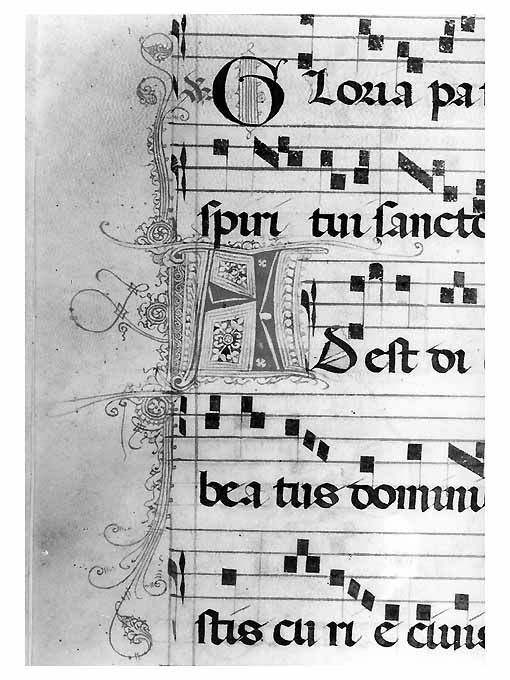 ℣ Gloria pa
spiri tui sancto
Adest di
bea tus domini
stis cu ri e ciuis